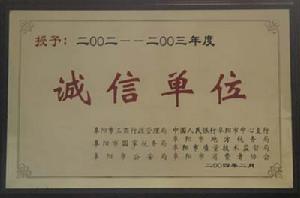 授予：二〇〇二——二〇〇三年度
诚信单位
阜阳市工商行政管理局 中国人民银行阜阳市中心支行
阜阳市国家税务局 阜阳市地方税务局
阜阳市质量技术监督局
阜阳市公安局 阜阳市消费者协会
二〇〇四年二月